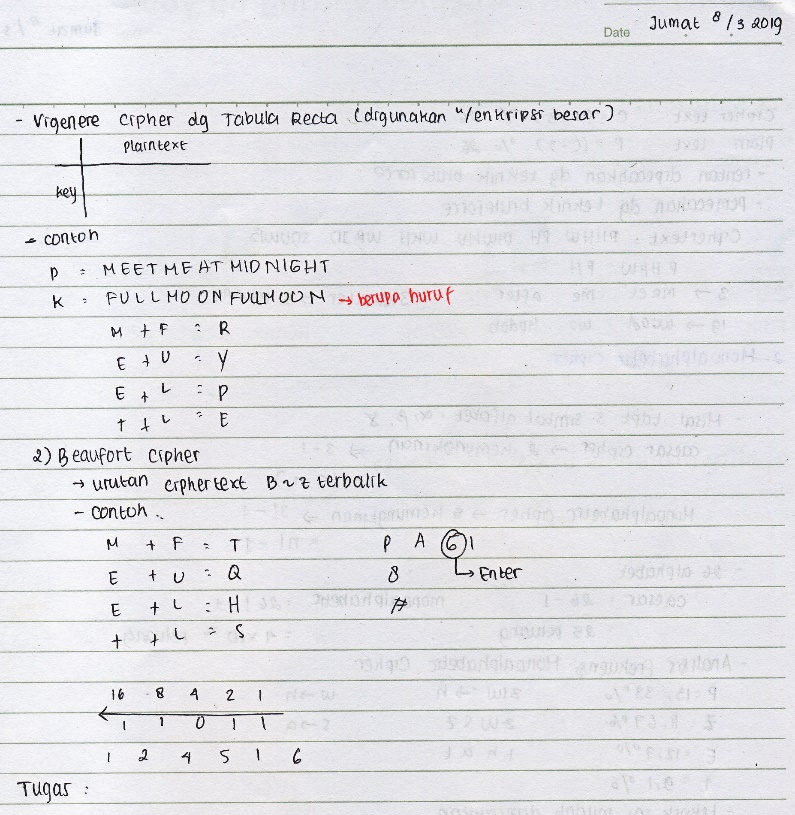 Date Jumat 8/3 2019
- Vigenere cipher dg Tabula Recta (digunakan u/enkripsi besar)
plaintext
key
- contoh
P = MEETMEATMIDNIGHT
K = FULLMOONFULLMOON → berupa huruf
M + F = R
E + U = Y
E + L = P
T + L = E
2) Beaufort cipher
→ urutan ciphertext B ~ Z terbalik
- contoh :
M + F = T P A G I
E + U = Q 8 → Enter
E + L = H
T + L = S
16 8 4 2 1
1 1 0 1 1
1 2 4 5 1 6
Tugas :